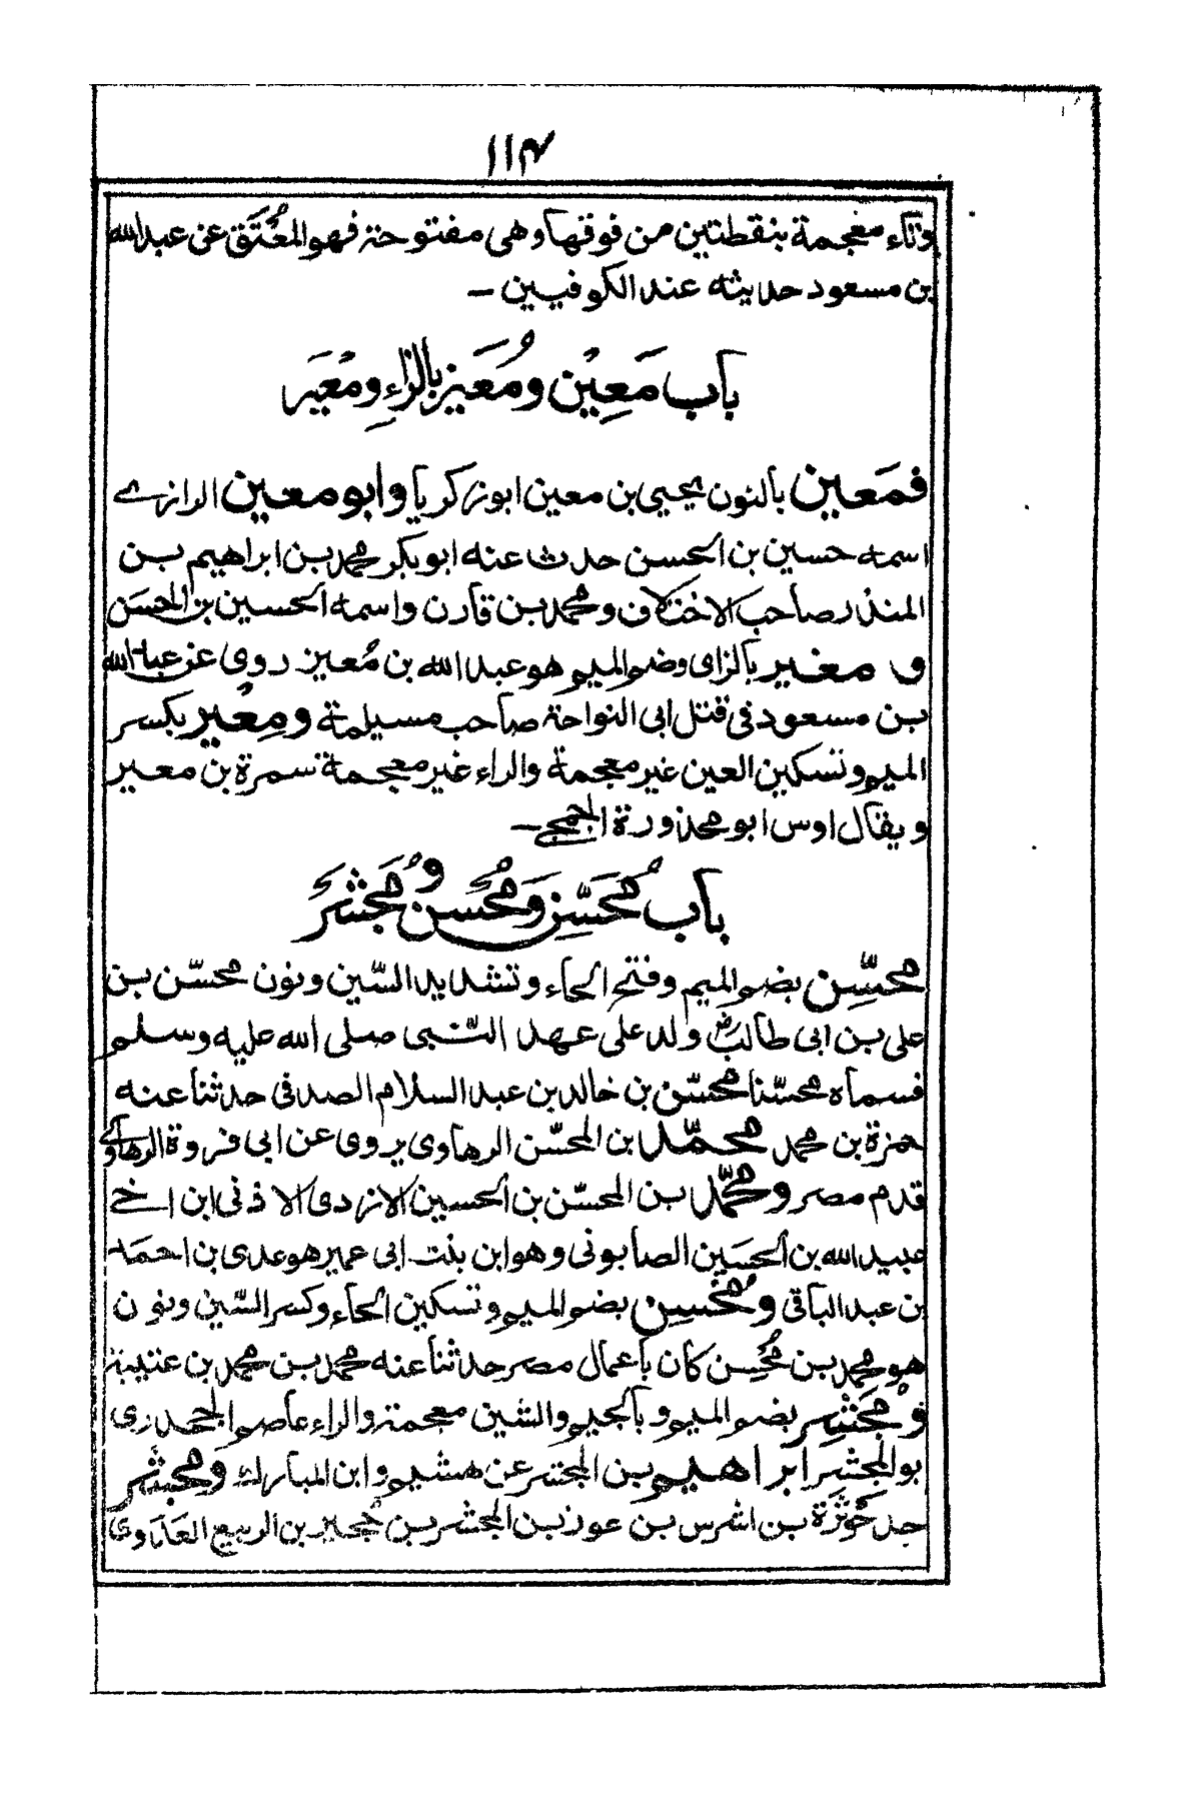 ١١٤
وتاء معجمة بنقطتين من فوقها وهى مفتوحة فهو المُعْتَق عن عبد الله
بن مسعود حديثه عند الكوفيين ـ
باب مَعِيْن ومُعَيز بالزاءِ ومعْيَر
فمَعين بالنون يحيى بن معين ابو زكريا وابو معين الرازے
اسمه حسين بن الحسن حدث عنه ابو بكر محمد بن ابراهيم بن
المنذر صاحب الاختلاف ومحمد بن قارن واسمه الحسين بن الحسَن
و معيز بالزاى وضم الميم هو عبد الله بن مُعيز روى عن عبد الله
بن مسعود فى قتل ابى النواحة صاحب مسيلمة ومِعْير بكسر
الميم وتسكين العين غير معجمة والراء غير معجمة سمرة بن معير
ويقال اوس ابو محذورة الجمحے ـ
باب مُحَسِّن وَمُحْسن ومُجَشِّر
محسِّن بضم الميم وفتح الحاء وتشديد السّين ونون محسّن بن
على بن ابى طالبؓ ولد على عهد النّبى صلى الله عليه وسلم
فسماه محسّنا محسّن بن خالد بن عبد السلام الصدفى حدثنا عنه
حمزة بن محمد محمّد بن المحسّن الرهاوى يروى عن ابى فروة الرهاوے
قدم مصر ومحمّد بن المحسّن بن الحسين الازدى الاذنى ابن اخے
عبيد الله بن الحسَين الصابونى وهو ابن بنت ابى عمير هو عدى بن احمَد
بن عبد الباقى ومُحْسِن بضم الميم وتسكين الحاء وكسر السّين ونون
هو محمد بن مُحْسِن كان باعمال مصر حدثنا عنه محمد بن محمد بن عتيبة
ومُجَشِّر بضم الميم وبالجيم والشين معجمة والراء عاصم الجحدرى
بو المجشر ابراهيم بن المجشر عن هشيم وابن المبارك ومجشّر
جد حَوْثَرَة بن اشرس بن عون بن المجشر بن حُجير بن الربيع العَدَوى